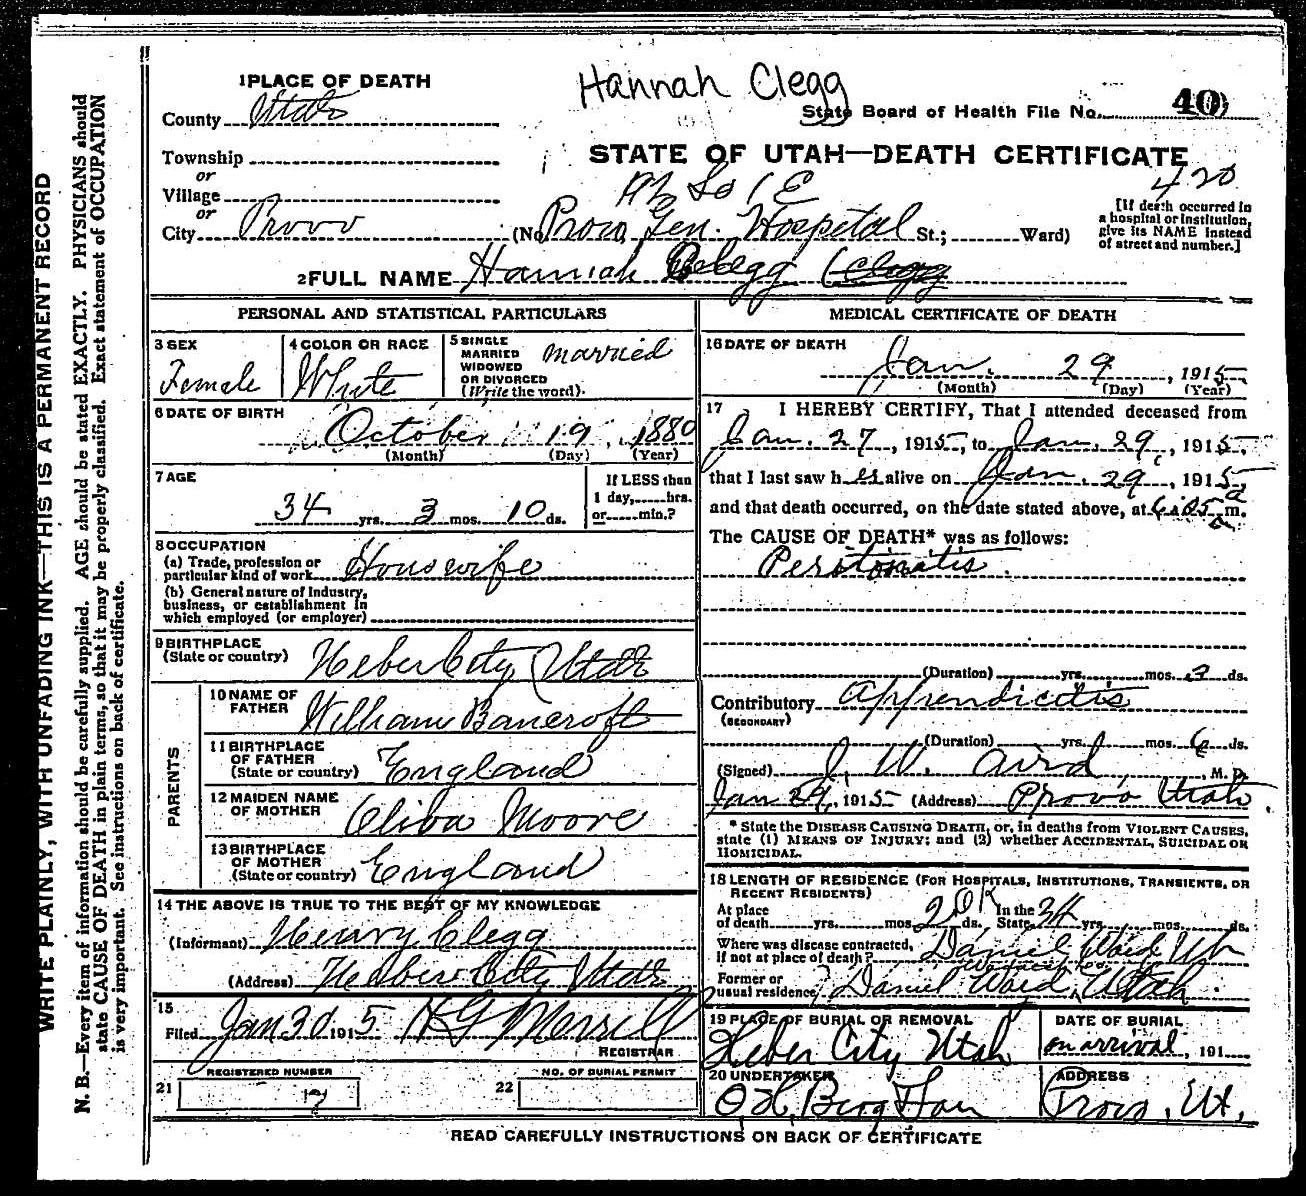 Hannah Clegg
1 PLACE OF DEATH
County Utah
State Board of Health File No. 40
Township
or
Village
or
City Provo
STATE OF UTAH—DEATH CERTIFICATE
420
(No. Provo Gen. Hospital St.; Ward)
[If death occurred in
a hospital or institution,
give its NAME instead
of street and number.]
2 FULL NAME Hannah Clegg
PERSONAL AND STATISTICAL PARTICULARS
3 SEX
Female
4 COLOR OR RACE
White
5 SINGLE
MARRIED
WIDOWED
OR DIVORCED
(Write the word).
married
6 DATE OF BIRTH
October 19, 1880
(Month) (Day) (Year)
7 AGE
34 yrs. 3 mos. 10 ds.
If LESS than
1 day, hrs.
or min.?
8 OCCUPATION
(a) Trade, profession or
particular kind of work Housewife
(b) General nature of Industry,
business, or establishment in
which employed (or employer)
9 BIRTHPLACE
(State or country) Heber City Utah
PARENTS
10 NAME OF
FATHER William Bancroft
11 BIRTHPLACE
OF FATHER
(State or country) England
12 MAIDEN NAME
OF MOTHER Moore
13 BIRTHPLACE
OF MOTHER
(State or country) England
14 THE ABOVE IS TRUE TO THE BEST OF MY KNOWLEDGE
(Informant) Henry Clegg
(Address) Heber City Utah
15
Filed Jan 30 1915 H G Merrill
REGISTRAR
REGISTERED NUMBER
21 17
NO. OF BURIAL PERMIT
22
MEDICAL CERTIFICATE OF DEATH
16 DATE OF DEATH
Jan. 29, 1915
(Month) (Day) (Year)
17 I HEREBY CERTIFY, That I attended deceased from
Jan. 27, 1915, to Jan. 29, 1915
that I last saw h er alive on Jan. 29, 1915
and that death occurred, on the date stated above, at 6:05 a m.
The CAUSE OF DEATH* was as follows:
Peritonitis.
(Duration) yrs. mos. ds.
Contributory Appendicitis
(SECONDARY)
(Duration) yrs. mos. 6 ds.
(Signed) J. W. Aird, M. D.
Jan 29, 1915 (Address) Provo Utah.
* State the DISEASE CAUSING DEATH, or, in deaths from VIOLENT CAUSES,
state (1) MEANS OF INJURY; and (2) whether ACCIDENTAL, SUICIDAL OR
HOMICIDAL.
18 LENGTH OF RESIDENCE (FOR HOSPITALS, INSTITUTIONS, TRANSIENTS, OR
RECENT RESIDENTS)
At place
of death yrs. mos. 2 ds. In the State 34 yrs. mos. ds.
Where was disease contracted,
if not at place of death? Daniel Ward Ut
Former or
usual residence Daniel Ward, Utah.
19 PLACE OF BURIAL OR REMOVAL
Heber City Utah
DATE OF BURIAL
on arrival, 191
20 UNDERTAKER
O H Berg & Son
ADDRESS
Provo, Ut.
READ CAREFULLY INSTRUCTIONS ON BACK OF CERTIFICATE
WRITE PLAINLY, WITH UNFADING INK—THIS IS A PERMANENT RECORD
N. B.—Every item of information should be carefully supplied. AGE should be stated EXACTLY. PHYSICIANS should
state CAUSE OF DEATH in plain terms, so that it may be properly classified. Exact statement of OCCUPATION
is very important. See instructions on back of certificate.